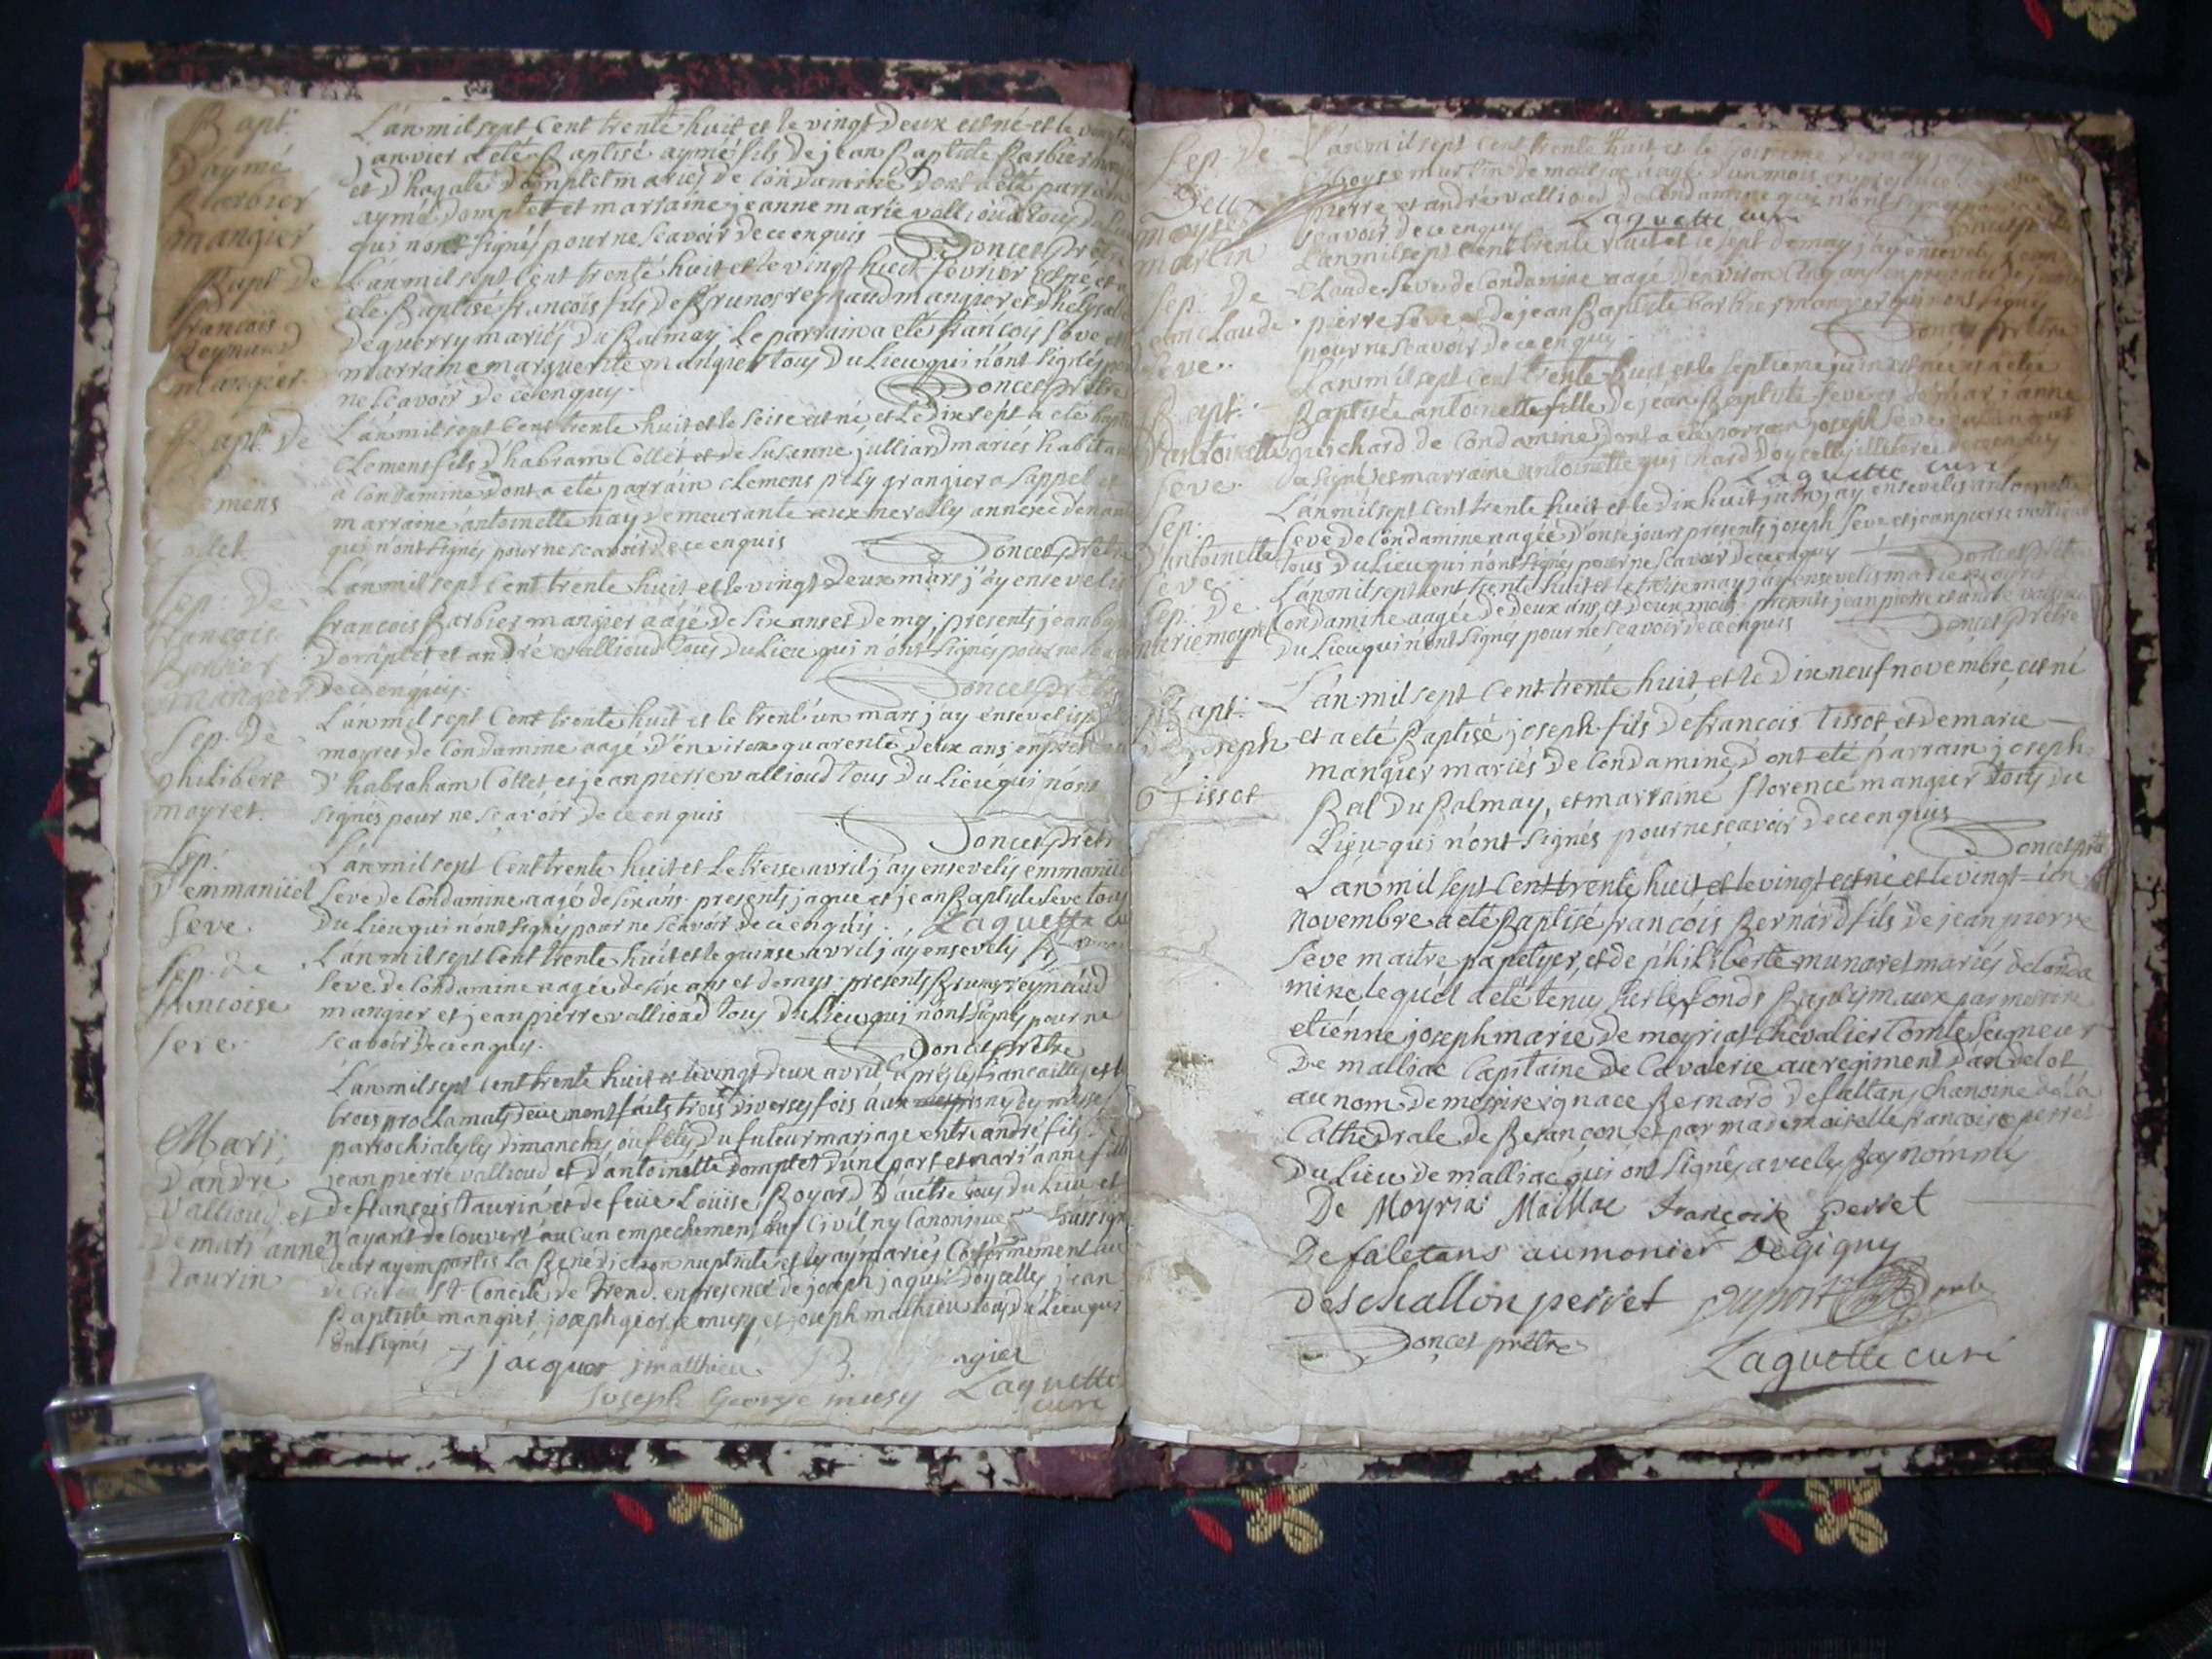 Bapt.
D'aymé
Barbier
mangier
L'an mil sept Cent trente huit et le vingt Deux est né et le
janvier a eté Baptisé aymé fils de jean Baptiste Barbier
et D'hagate Domplet mariés de Condamine Dont a eté parrain
aymé Domplet et marraine jeanne marie vallioud tous du
qui n'ont signés pour ne scavoir de ce enquis Doncet prêtre
Bapt. De
francois
Reynaud
mangier
L'an mil sept Cent trente huit et le vingt huit février est né et a
eté Baptisé francois fils de Bruno reynaud mangier et D'helysabe
Dequerry mariés Du Balmay; Le parrain a eté françois Seve et
marraine marguerite mangier tous Du Lieu qui n'ont signés
ne scavoir De ce enquis. Doncet prêtre
Bapt. De
Clemens
Collet
L'an mil sept Cent trente huit et le seise est né, et Le Dix sept a eté bapt
Clemens fils d'habram Collet et de Susanne julliard mariés habitan
à Condamine Dont a eté parrain Clemens grangier a Sappel et
marraine antoinette nay Demeurante aux nerolly annexe de
qui n'ont signés pour ne scavoir De ce enquis Doncet prêtre
Sep. De
francois
Barbier
Mangier
L'an mil sept Cent trente huit et le vingt Deux mars j'ay ensevelis
francois Barbier mangier aagé de six ans et demy; presents jean
Domplet et andré vallioud Tous Du Lieu qui n'ont signés pour ne
De ce enquis. Doncet prêtre
Sep. De
philibert
moyret.
L'an mil sept Cent trente huit et le trent'un mars j'ay ensevelis
moyret de Condamine aagé d'environ quarente Deux ans en
D'habraham Collet et jean pierre vallioud tous Du Lieu qui n'ont
signés pour ne scavoir De ce enquis
Doncet prêtre
Sep.
D'emmanüel
Seve.
L'an mil sept Cent trente huit et Le treise avril j'ay ensevelis emmanüel
Seve de Condamine aagé de six ans presents jaque et jean Baptiste Seve tous
Du Lieu qui n'ont signés pour ne scavoir De ce enquis. Laquette
Sep. de
francoise
Seve.
L'an mil sept Cent trente huit et le quinse avril j'ay ensevelis
Seve de Condamine aagée de six ans et demy: presents Bruno reynaud
mangier et jean pierre vallioud tous du Lieu qui n'ont signés pour ne
scavoir De ce enquis. Doncet prêtre
Mari;
D'andré
Vallioud et
De mari anne
Taurin
L'an mil sept cent trente huit et le vingt deux avril après les fiancailles et
trois proclamats deüement faits trois Diverses fois aux prosnes des messes
parrochiales les dimanches ou fêtes Du futeur mariage entre andré fils de
jean pierre vallioud et D'antoinette Domplet D'une part et mari anne fille
De francois Taurin et de feüe Louise Royard D'autre tous du Lieu et
n'ayant decouvert aucun empechement Civil ny Canonique
leur ay imparti la Benediction nuptiale et les ay mariés Conformement au
de St Concile de Trend. en presence de joseph jaquer Doycelles jean
Baptiste mangier, joseph george musy et joseph mathieu tous du Lieu qui
ont signés
J jacquer jmatthieu B. ngier
Joseph George musy Laquette
curé
Sep. De
moyse
martin
L'an mil sept Cent trente huit et le
moyse martin de malliac aagé d'un mois en presence
pierre et andré vallioud de Condamine qui n'ont signés
scavoir De ce enquis Laquette curé
Sep. De
jean Claude
Seve.
L'an mil sept Cent trente huit et le sept de may j'ay ensevelis jean
Claude Seve de Condamine aagé d'environ Cinq ans en presence de
pierre Seve et de jean Baptiste Barbier mangier qui n'ont signés
pour ne scavoir De ce enquis. Doncet prêtre
Bapt.
D'antoinette
Seve.
L'an mil sept Cent trente huit et le septieme juin est née et a eté
Baptisée antoinette fille de jean Baptiste Seve et de mari anne
guichard de Condamine, Dont a eté parrain joseph Seve
signé et marraine antoinette guichard D'oycelly illeteree De ce enquis
Laquette curé
Sep.
D'antoinette
Seve.
L'an mil sept Cent trente huit et le dix huit juin j'ay ensevelis antoinette
Seve de Condamine aagée D'onse jours presents joseph Seve et jean pierre vallioud
tous Du Lieu qui n'ont signés pour ne scavoir De ce enquis Doncet prêtre
Sep. De
marie moyret
L'an mil sept Cent trente huit et le treise may j'ay ensevelis marie moyret
Condamine aagée de Deux ans et Deux mois: presents jean pierre et andré vallioud
Du Lieu qui n'ont signés pour ne scavoir de ce enquis Doncet prêtre
Bapt.
De joseph
Tissot
L'an mil sept Cent trente huit, et le Dix neuf novembre, est né
et a eté Baptisé joseph fils De francois Tissot et de marie
mangier mariés De Condamine, D'ont eté parrain joseph
Bal Du Balmay, et marraine florence mangier tous du
Lieu qui n'ont signés pour ne scavoir De ce enquis
Doncet ptre
L'an mil sept Cent trente huit et le vingt est né et le vingt un
novembre a eté Baptisé francois Bernard fils De jean pierre
Seve maitre papetyer, et de philiberte munaret mariés de Conda
mine, lequel a eté tenu sur les fonds Baptismaux par messire
etiénne joseph marie de moyria Chevalier Comte Seigneur
De malliac Capitaine de Cavalerie au regiment d'andelot
au nom De messire ignace Bernard de falletans Chanoine de la
Cathedrale de Besançon, et par mademoiselle francoise perret
Du Lieu De malliac qui ont signés avec les Bas nommés
De Moyria Maillac françoise perret
De faletans aumonier Degigny
deschallon perret Duport
Doncet prêtre
Laquette curé